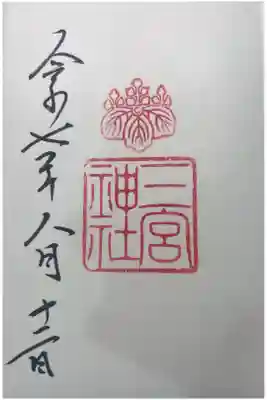 二宮
神社
令和七年八月十二日